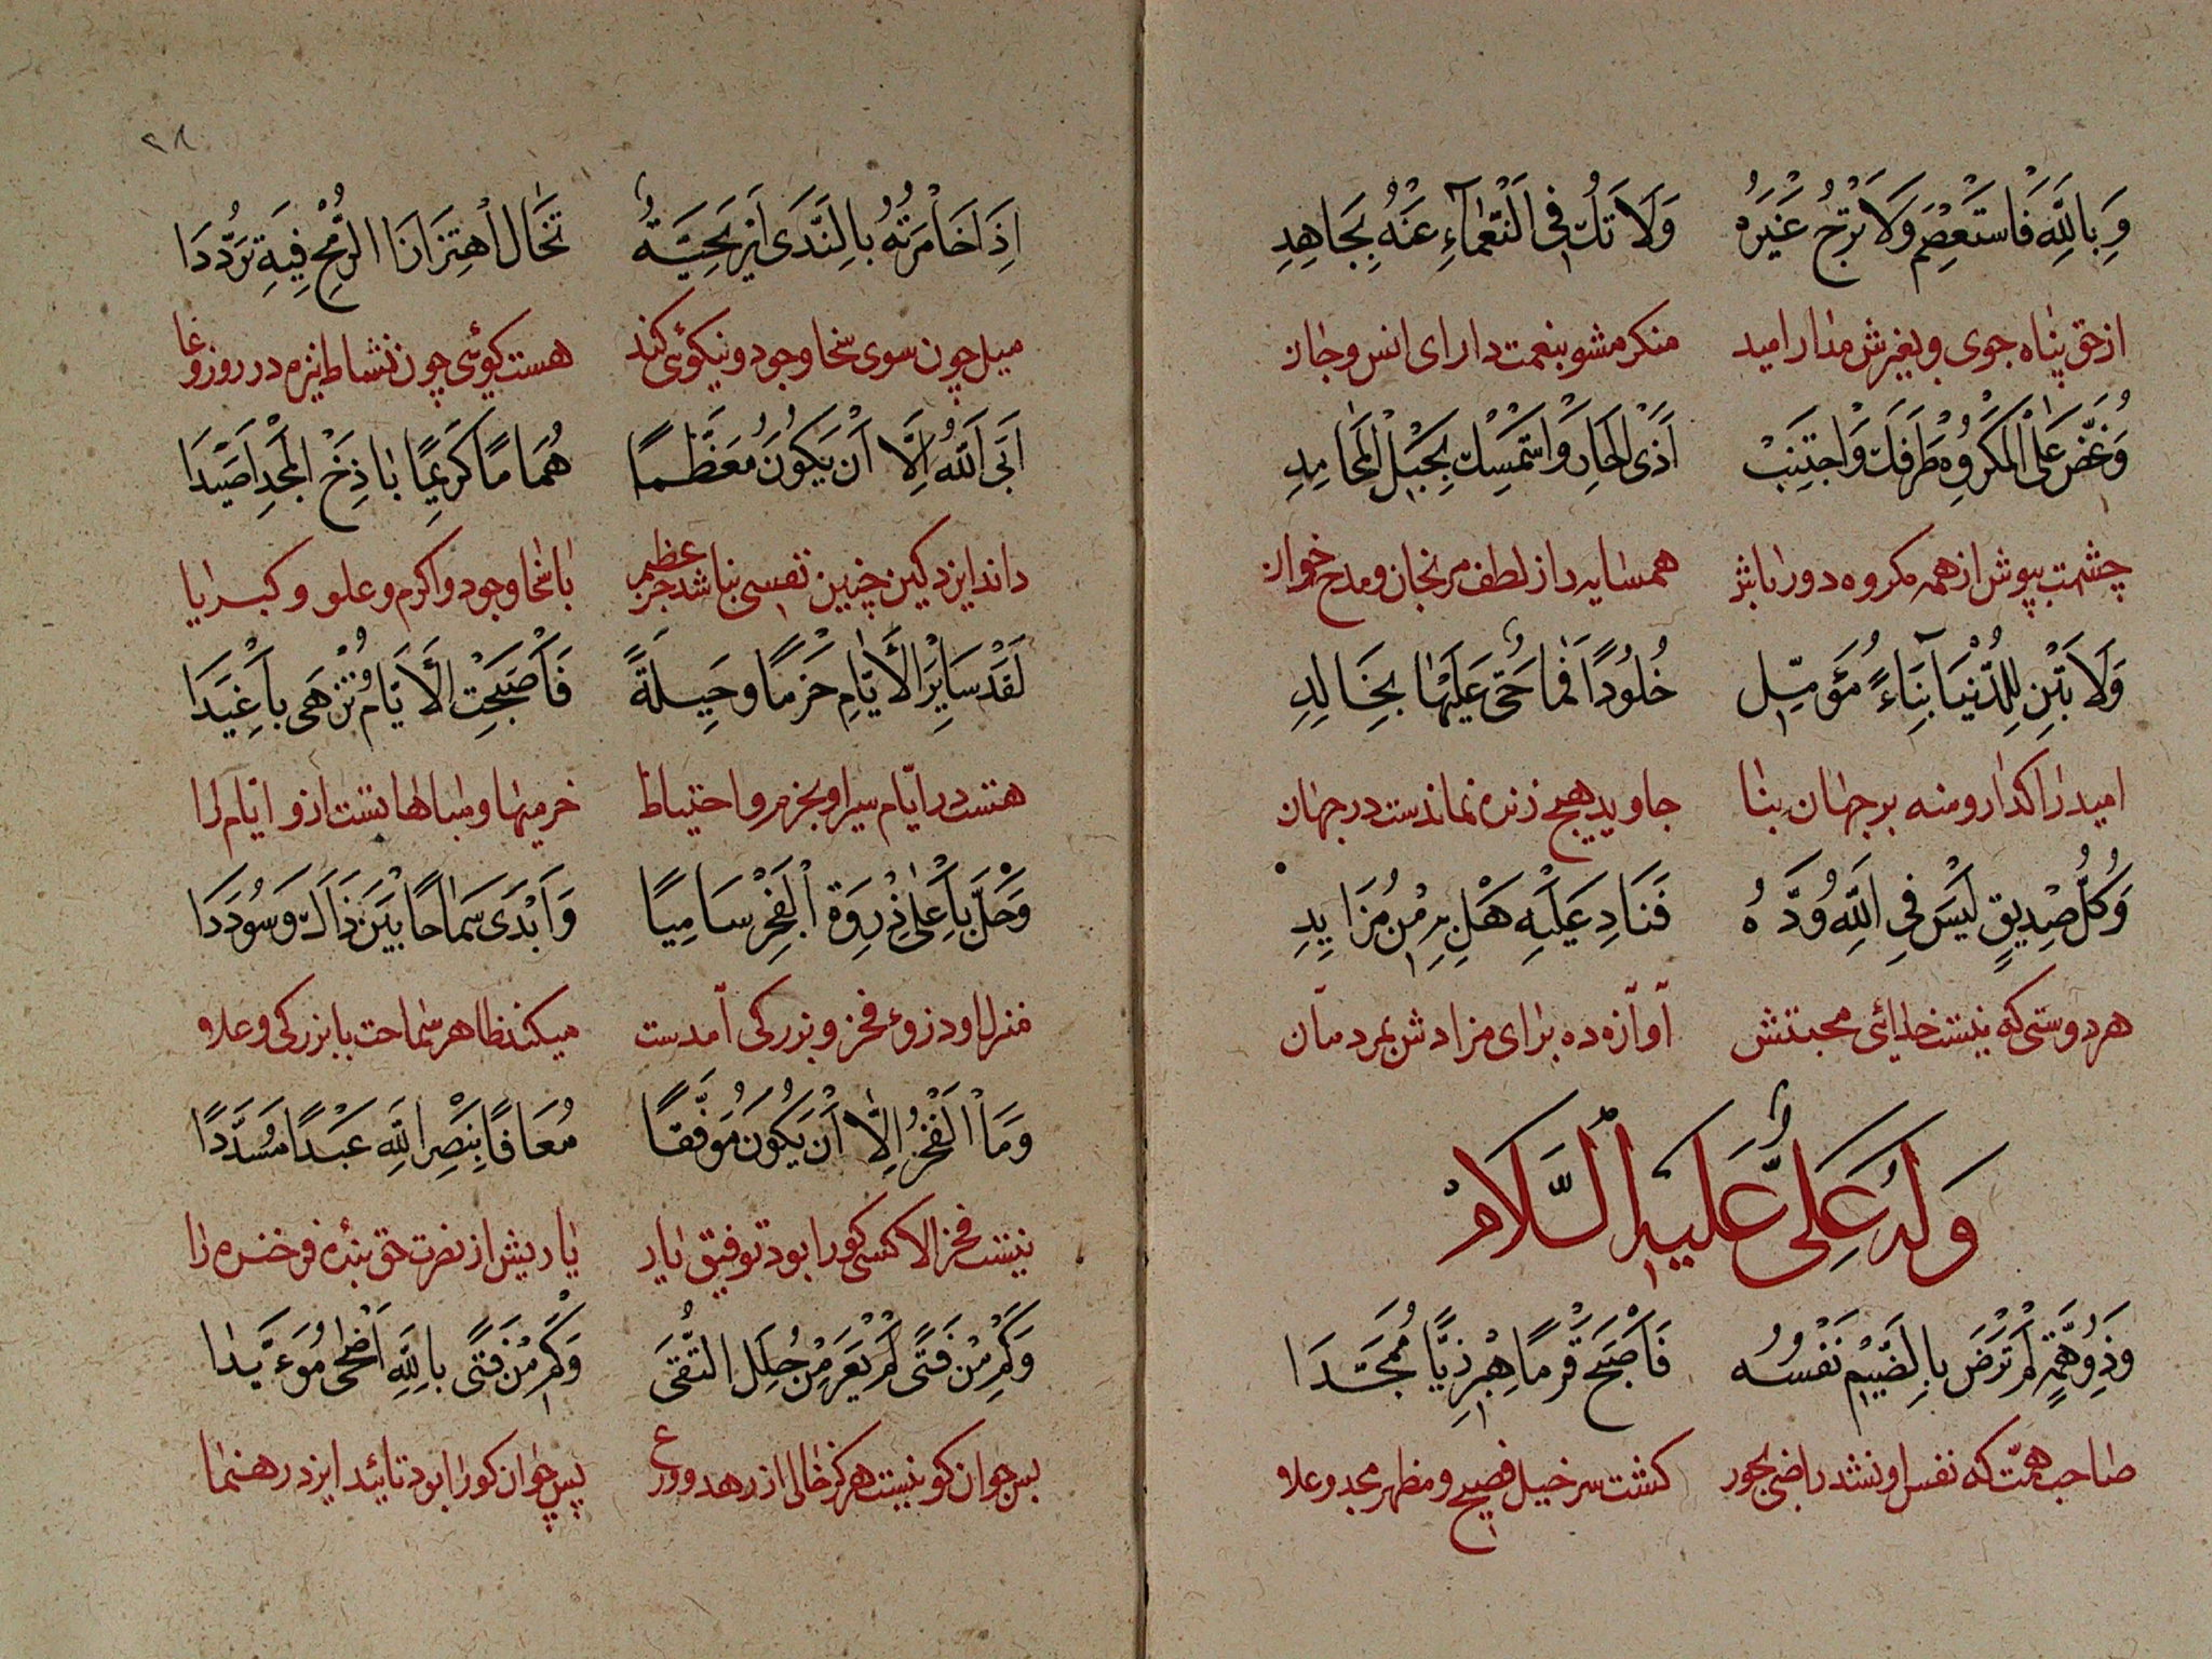 وَبِاللَّهِ فَاسْتَعْصِمْ وَلَا تَرْجُ غَيْرَهُ وَلَا تَكُ فِي النَّعْمَآءِ عَنْهُ بِجَاهِدِ
از حق پناه جوی و بغیرش مدار امید منکر مشو بنعمت دارای انس و جان
وَغُضَّ عَلَى الْمَكْرُوهِ طَرْفَكَ وَاجْتَنِبْ اَذَى الْجَارِ وَاسْتَمْسِكْ بِحَبْلِ الْمَحَامِدِ
چشمت بپوش از همه مکروه دور باش همسایه را ز لطف مرنجان و مدح خوان
وَلَا تَبْنِ لِلدُّنْيَا بِنَآءَ مُؤَمِّلٍ خُلُودًا فَمَا حَيٌّ عَلَيْهَا بِخَالِدِ
امید را گذار و منه بر جهان بنا جاوید هیچ زنده نماندست در جهان
وَكُلُّ صَدِيقٍ لَيْسَ فِي اللَّهِ وُدُّهُ فَنَادِ عَلَيْهِ هَلْ بِهِ مِنْ مُزَايِدِ
هر دوستی که نیست خدائی محبتش آوازه ده برای مزادش بمردمان
وَلَهُ عَلَى عَلَيْهِ السَّلَامْ
وَذُو هِمَّةٍ لَمْ تَرْضَ بِالضَّيْمِ نَفْسُهُ فَأَصْبَحَ قَرْمًا هِبْرِزِيًّا مُمَجَّدَا
صاحب همّت که نفس او نشد راضی بجور گشت سرخیل فصیح و مظهر مجد و علا
٢٨
اِذَا خَامَرَتْهُ بِالنَّدَى اَرْيَحِيَّةٌ تَخَالُ اهْتِزَازَ الرُّمْحِ فِيهِ تَرَدُّدَا
میل چون سوی سخا و جود و نیکوئی کند هست گوئی چون نشاط نیزه در روز وغا
اَبَى اللَّهُ اِلَّا اَنْ يَكُونَ مُعَظَّمًا هُمَامًا كَرِيمًا بَاذِخَ الْمَجْدِ اَصْيَدَا
داند ایزد کین چنین نفسی نباشد جز عظیم با سخا و جود و اکرم و علو و کبریا
لَقَدْ سَايَرَ الْأَيَّامَ حَزْمًا وَحِيلَةً فَأَصْبَحَتِ الْأَيَّامُ تُزْهَى بِأَغْيَدَا
هست در ایّام سیر او بحزم و احتیاط خرمیها و مباهاتست از و ایّام را
وَحَلَّ بِأَعْلَى ذِرْوَةِ الْفَخْرِ سَامِيًا وَاَبْدَى سَمَاحًا بَيْنَ ذَاكَ وَسُودَدَا
منزل او ذروهٔ فخر و بزرگی آمدست میکند ظاهر سماحت با بزرگی و علا
وَمَا الْفَخْرُ اِلَّا اَنْ يَكُونَ مُوَفَّقًا مُعَافًا بِنَصْرِ اللَّهِ عَبْدًا مُسَدَّدًا
نیست فخر الا کسی کورا بود توفیق یار یاریش از نصرت حق بنده فرخنده را
وَكَمْ مِنْ فَتًى لَمْ يَعْرَ مِنْ حُلَلِ التُّقَى وَكَمْ مِنْ فَتًى بِاللَّهِ اَضْحَى مُوَءَيَّدَا
بس جوان کو نیست هرگز خالی از زهد و ورع پس جوان کورا بود تائید ایزد رهنما